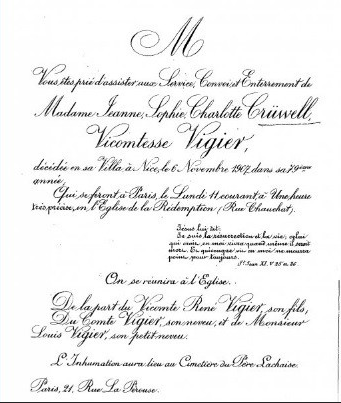 M
Vous êtes prié d'assister aux Service, Convoi et Enterrement de
Madame Jeanne, Sophie, Charlotte Crüwell,
Vicomtesse Vigier,
décédée en sa Villa à Nice, le 6 Novembre 1907, dans sa 79ème
année.
Qui se feront à Paris, le Lundi 11, courant, à Une heure
très précise, en l'Eglise de la Rédemption, (Rue Chauchat).
Jésus lui dit:
Je suis la résurrection et la vie, celui
qui croit en moi vivra quand même il serait
mort. Et quiconque vit en moi ne mourra
point pour toujours.
St Jean XI. V. 25 et 26.
On se réunira à l'Eglise.
De la part du Vicomte René Vigier, son fils,
Du Comte Vigier, son neveu, et de Monsieur
Louis Vigier, son petit neveu.
L'Inhumation aura lieu au Cimetière du Père Lachaise.
Paris, 21, Rue La Pérouse.